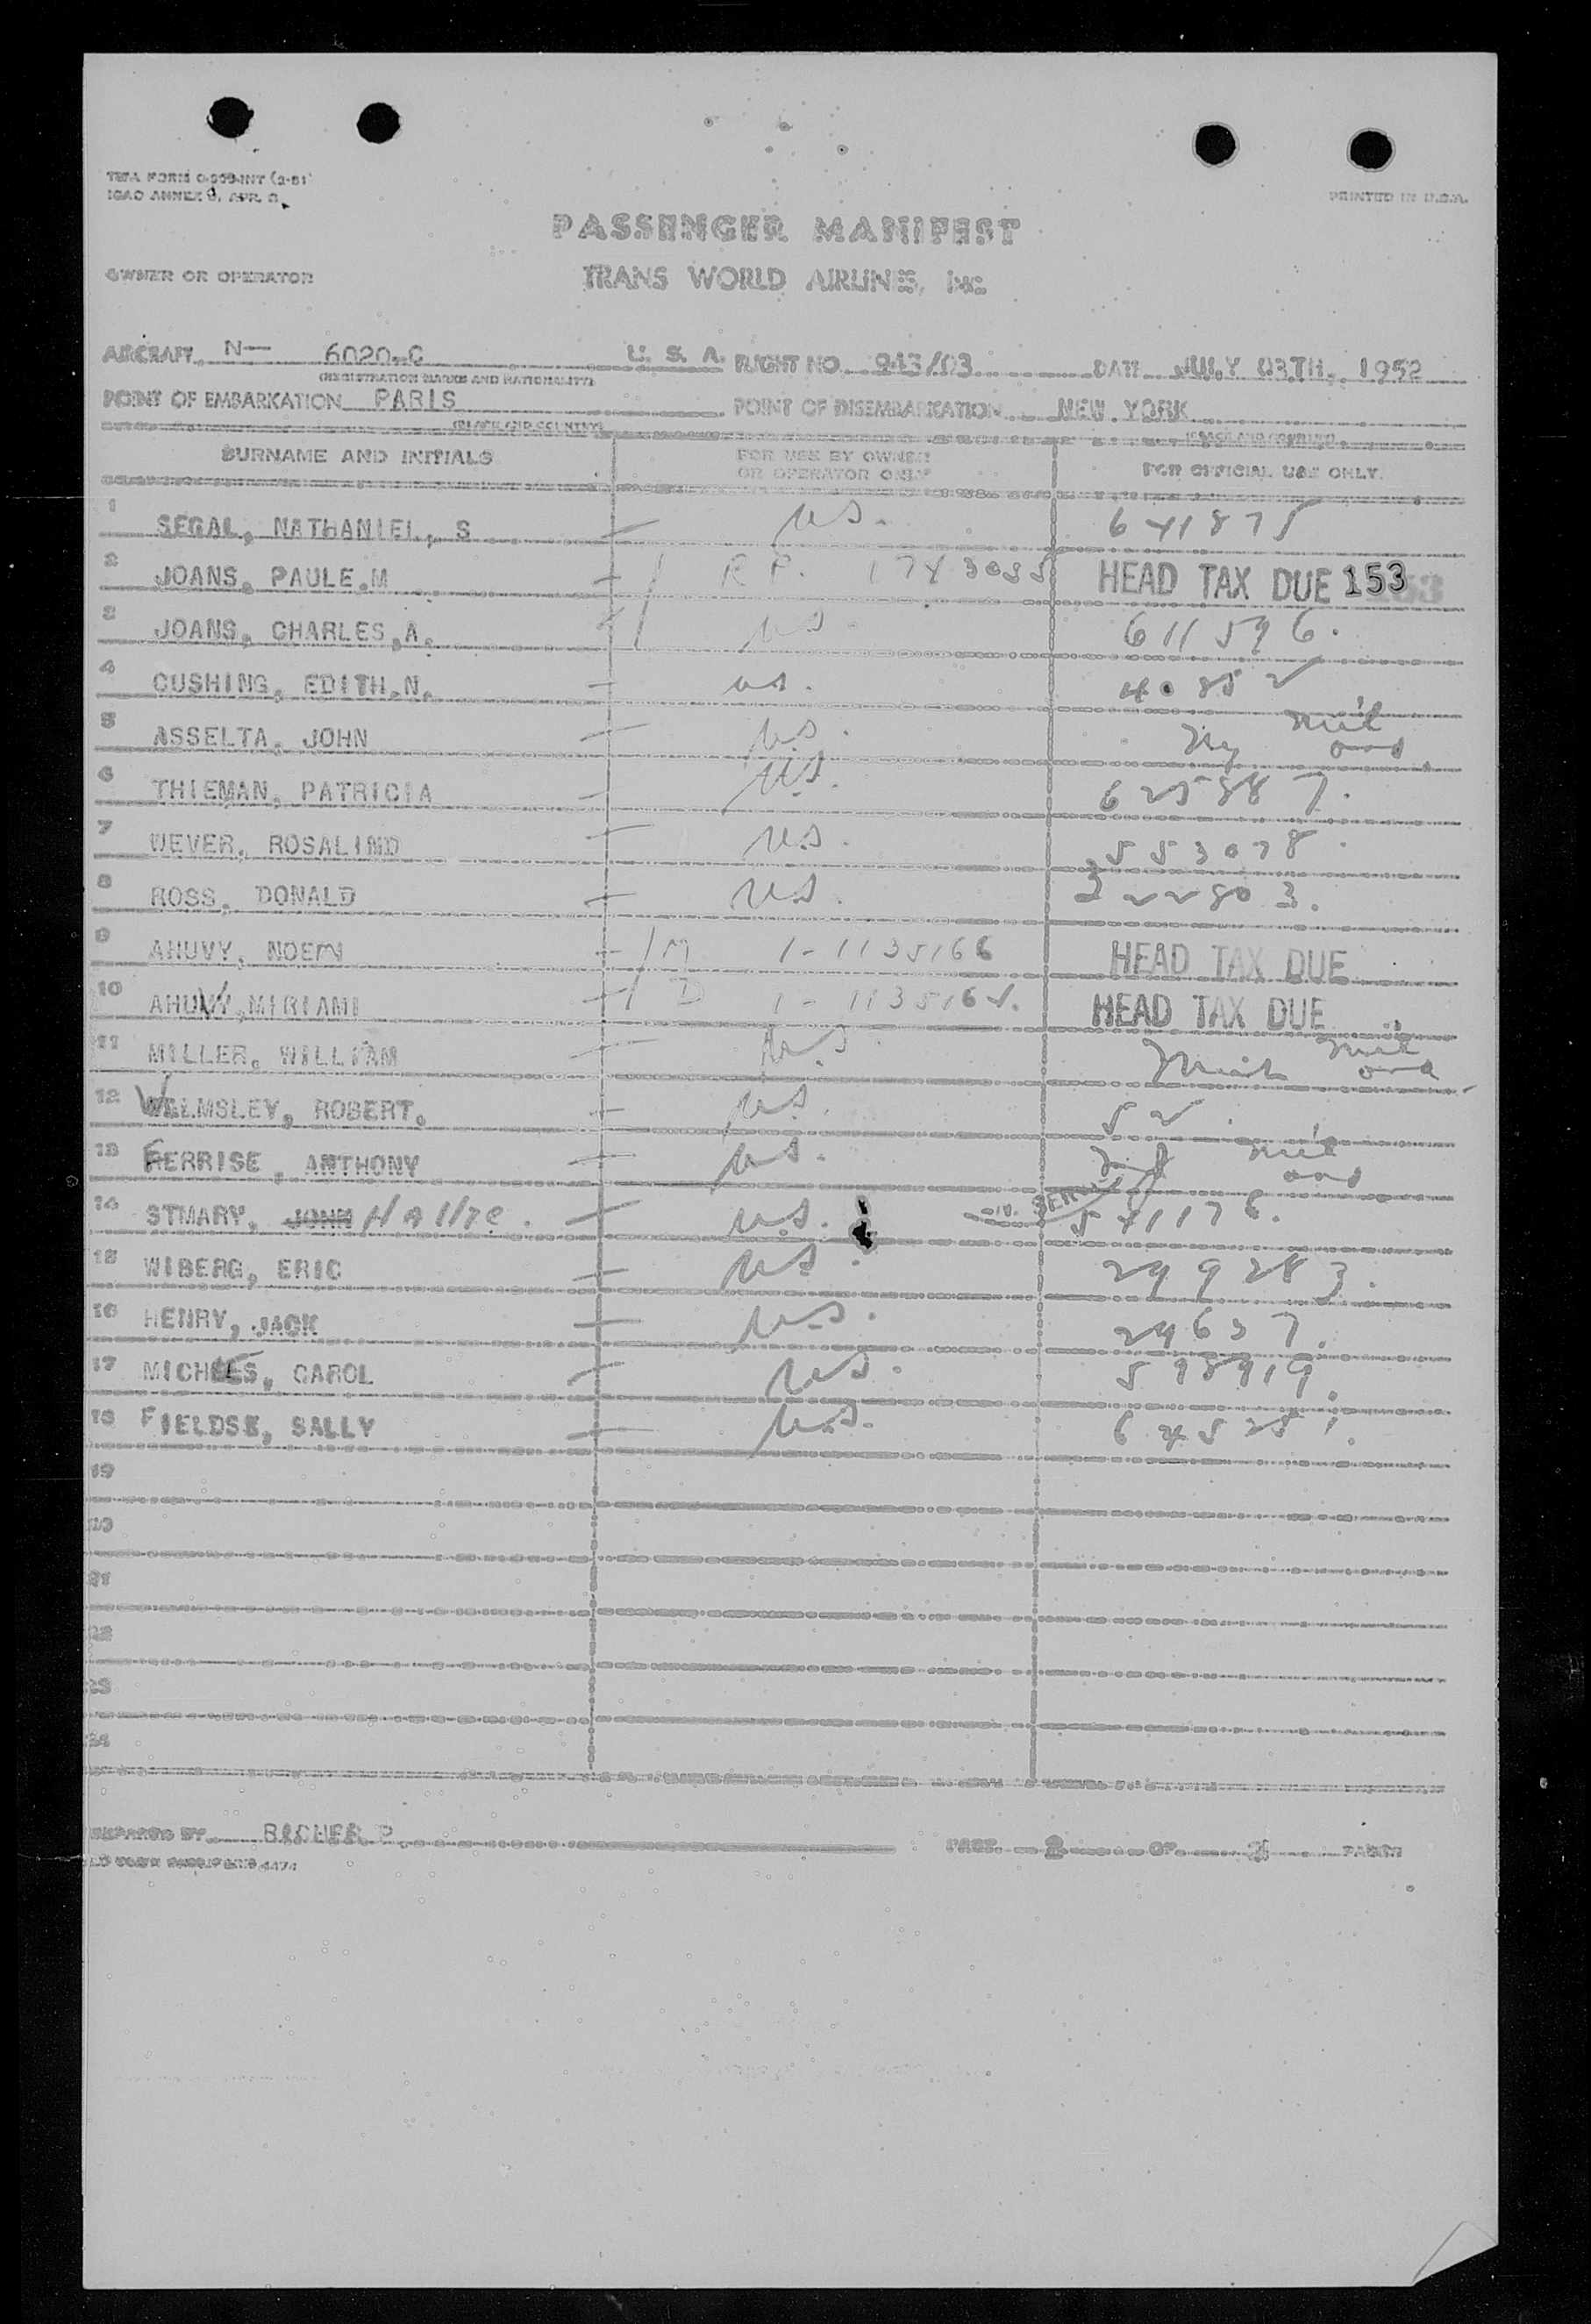 TWA FORM
ICAO ANNEX 9, APR.
PRINTED IN U.S.A.
PASSENGER MANIFEST
OWNER OR OPERATOR TRANS WORLD AIRLINES, INC
AIRCRAFT N— 6020-C U. S. A. FLIGHT NO. 943/03 DATE JULY 03TH, 1952
(REGISTRATION MARKS AND NATIONALITY)
POINT OF EMBARKATION PARIS POINT OF DISEMBARKATION NEW YORK
(PLACE AND COUNTRY) (PLACE AND COUNTRY)
SURNAME AND INITIALS FOR USE BY OWNER OR OPERATOR ONLY FOR OFFICIAL USE ONLY
1 SEGAL, NATHANIEL, S US. 641875
2 JOANS, PAULE.M R.P. 1743035 HEAD TAX DUE 153
3 JOANS, CHARLES,A. US. 611596.
4 CUSHING, EDITH.N. US.
5 ASSELTA, JOHN US. Ny mil ord
6 THIEMAN, PATRICIA US. 625887.
7 WEVER, ROSALIND US. 553078.
8 ROSS, DONALD US. 322803.
9 AHUVY, NOEM M 1-1135166 HEAD TAX DUE
10 AHUVY,MIRIAMI D HEAD TAX DUE
11 MILLER, WILLIAM US. mil ord
12 WELMSLEY, ROBERT. US. 52
13 FERRISE, ANTHONY US. mil ord
14 STMARY, JOHN Hallie. US. 541176.
15 WIBERG, ERIC US. 299283.
16 HENRY, JACK US. 29637.
17 MICHLES, CAROL US. 598919.
18 FIELDSE, SALLY US. 645251.
19
20
21
22
23
24
PREPARED BY PART 2 OF PARTS